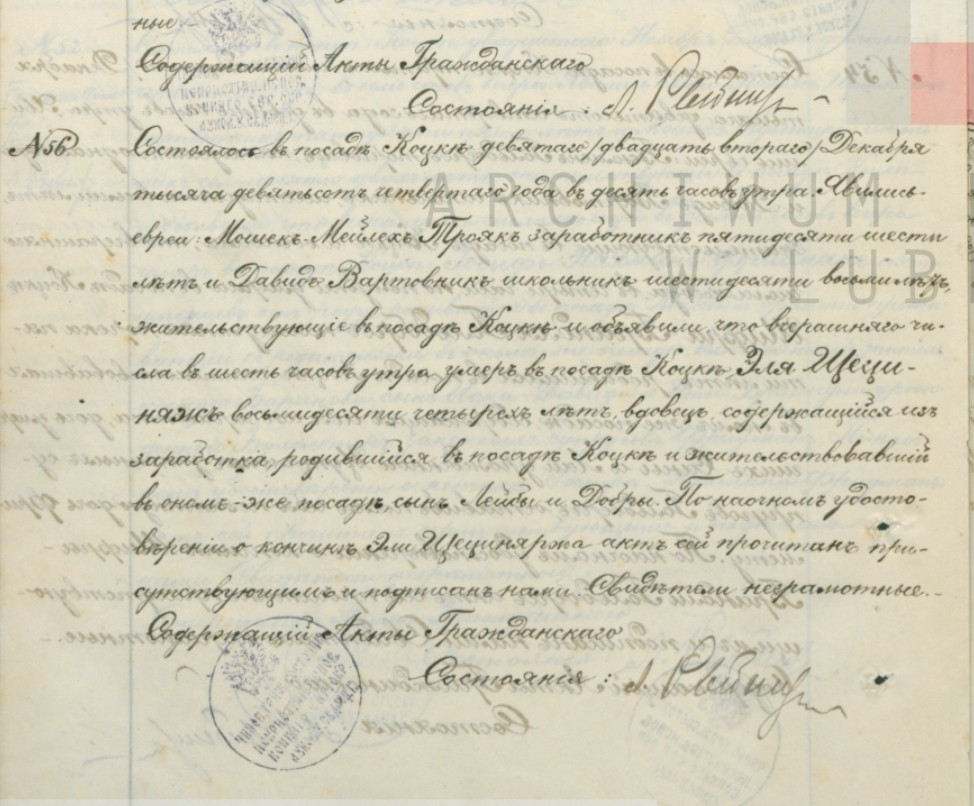 ные.-
Содержащій Акты Гражданскаго
Состоянія:
№54
№56.
Состоялось въ посадѣ Коцкѣ девятаго /двадцать втораго/ Декабря
тысяча девятьсотъ четвертаго года въ десять часовъ утра. Явились
евреи: Мошекъ-Мейлехъ Троякъ заработникъ пятидесяти шести
лѣтъ и Давидъ Вартовникъ школьникъ шестидесяти восьми лѣтъ,
жительствующіе въ посадѣ Коцкѣ и объявили, что вчерашняго чи-
сла въ шесть часовъ утра умеръ въ посадѣ Коцкѣ Эля Щеци-
няжъ восьмидесяти четырехъ лѣтъ, вдовецъ, содержащійся изъ
заработка, родившійся въ посадѣ Коцкѣ и жительствовавшій
въ ономъ-же посадѣ, сынъ Лейбы и Добры. По наочномъ удосто-
вѣреніи о кончинѣ Эли Щециняржа актъ сей прочитанъ при-
сутствующимъ и подписанъ нами. Свидѣтели неграмотные.-
Содержащій Акты Гражданскаго
Состоянія:
ARCHIWUM
W LUB